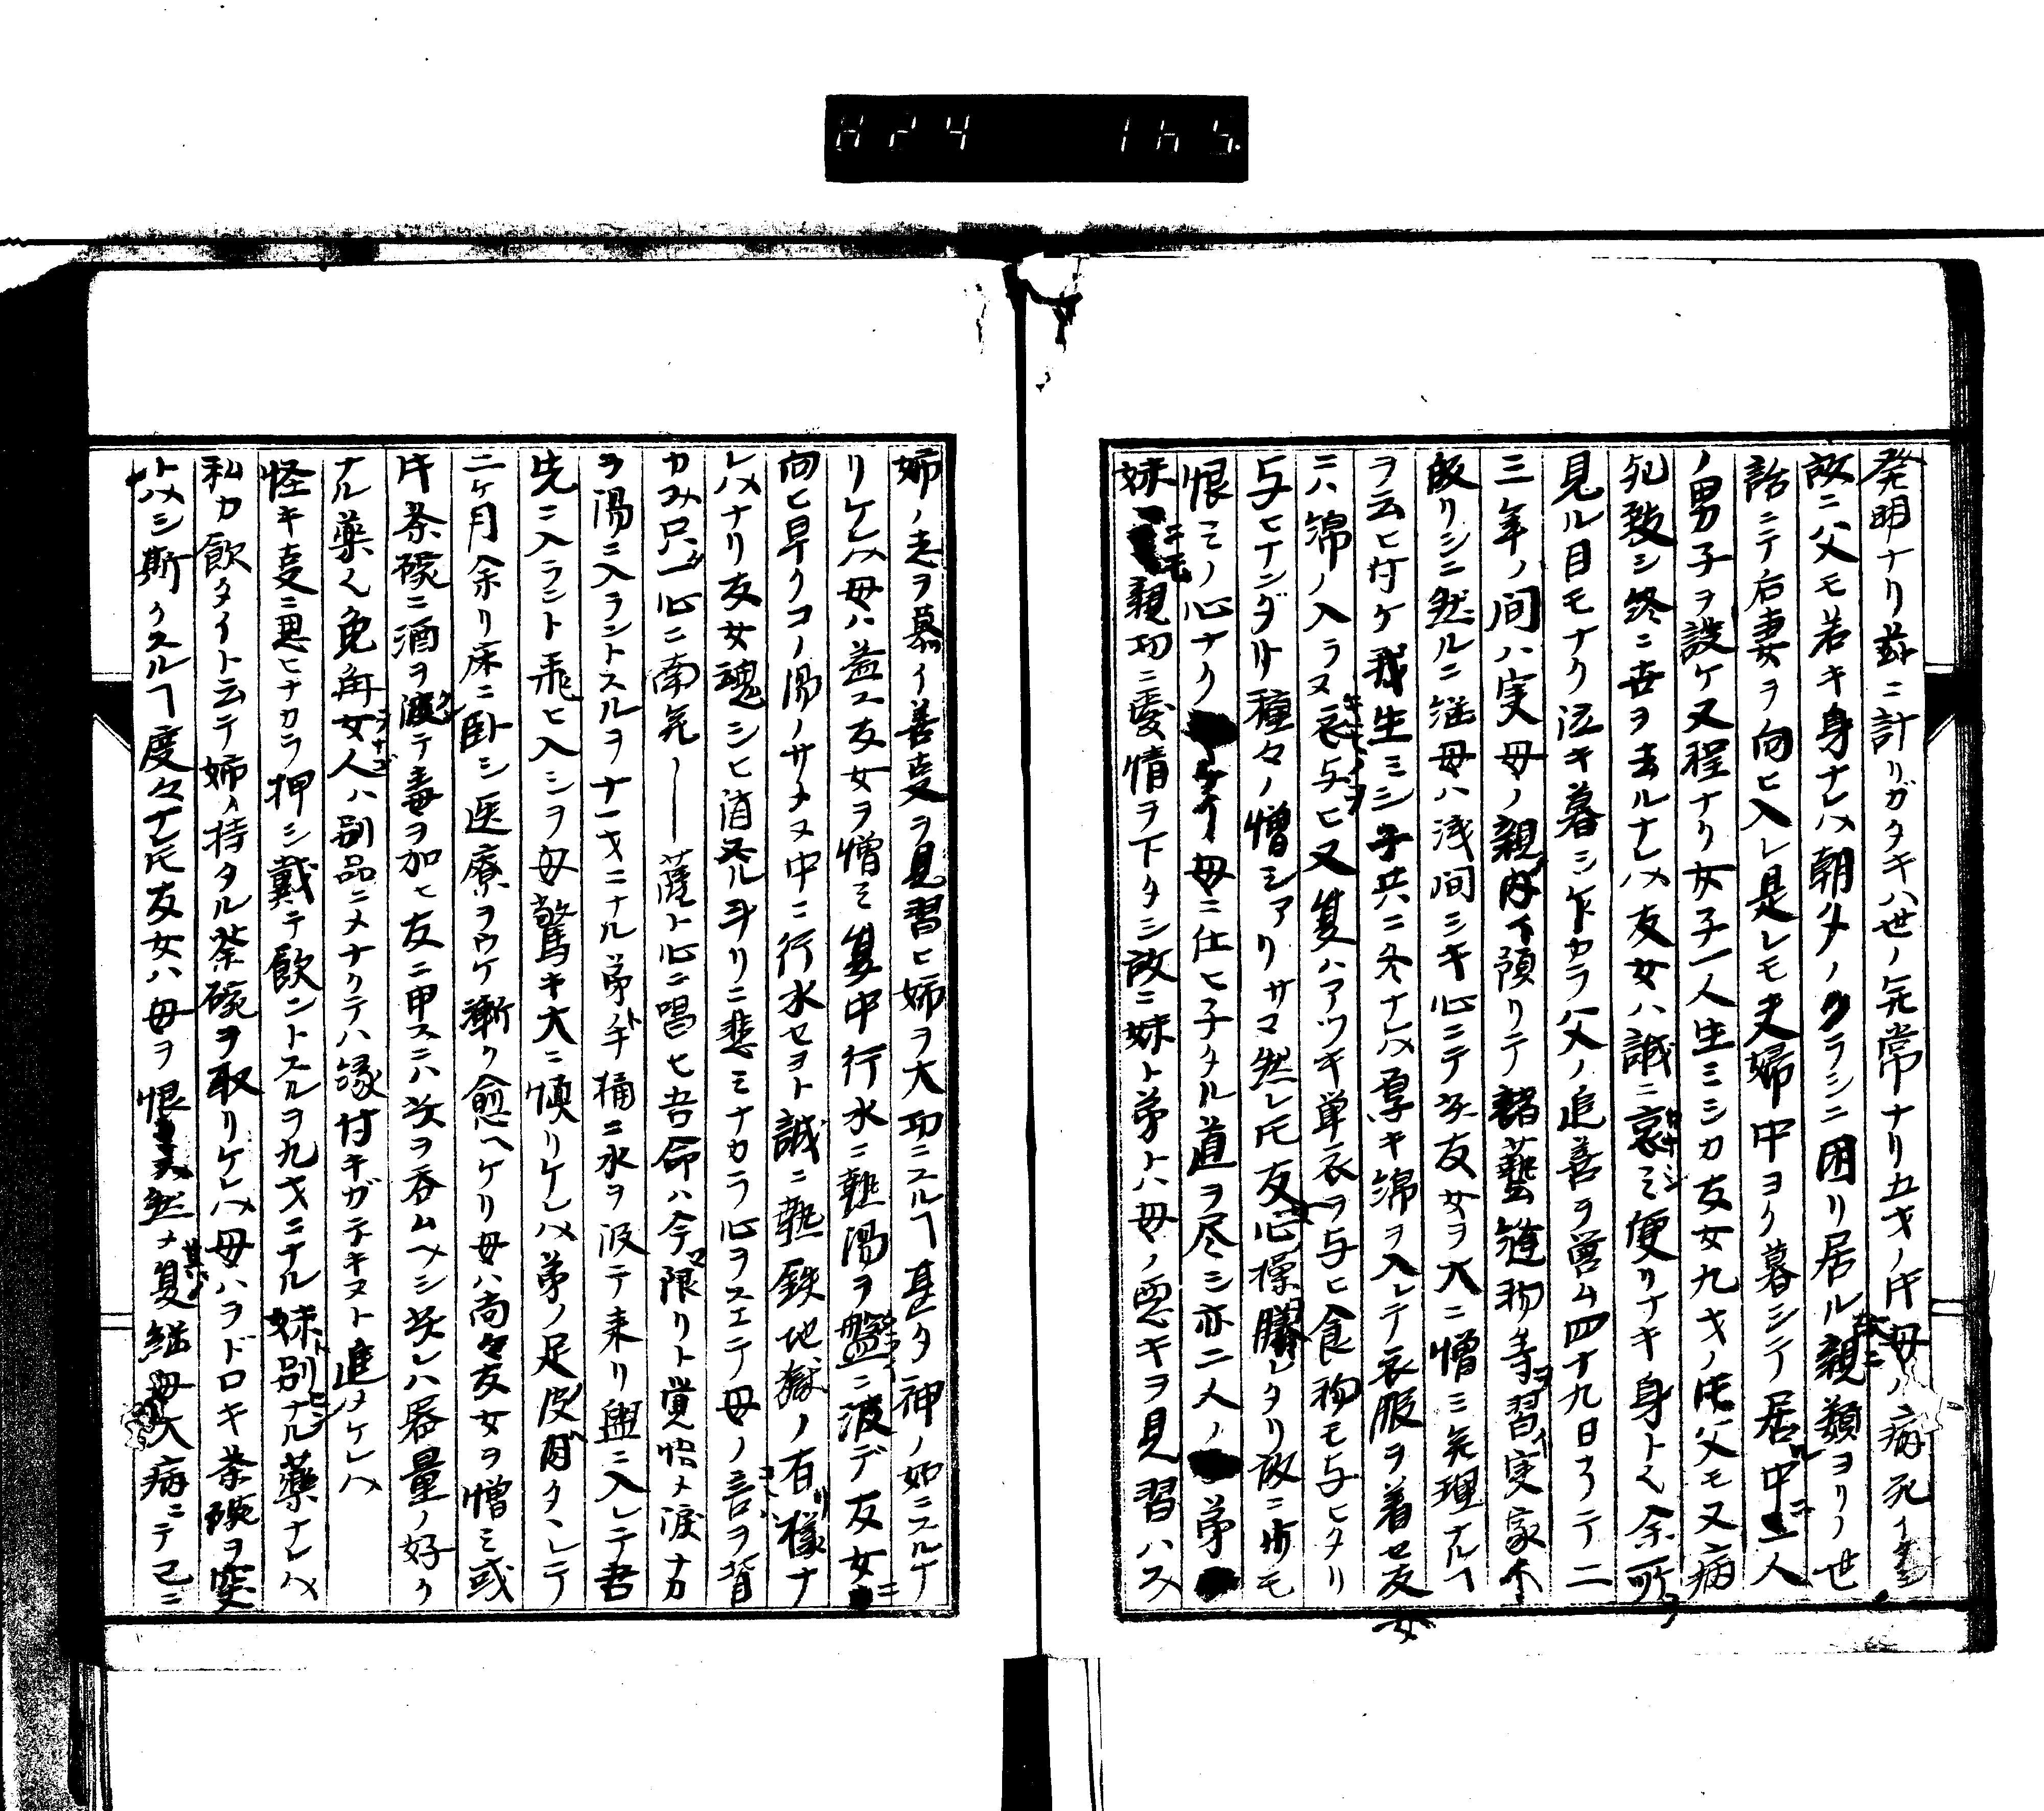 発明ナリ茲ニ計リガタキハ世ノ无常ナリ五才ノ時母ノ病死イタシ
故ニ父モ若キ身ナレハ朝夕ノクラシニ困リ居ル親類ヨリノ世
話ニテ右妻ヲ向ヒ入レ是レモ夫婦中ヨク暮シテ居中二人
ノ男子ヲ設ケ又程ナク女子一人生ミシカ友女九才ノ時父モ又病
死致シ終ニ世ヲ去ルナレハ友女ハ誠ニ哀ミ便リナキ身ト成余所
見ル目モナク泣キ暮シ乍カラ父ノ追善ヲ営ム四十九日ノテ二
三年ノ間ハ実母ノ親内イ預リテ諸藝縫物等習イ実家ヘ
皈リシニ然ルニ継母ハ浅間シキ心ニテ友女ヲ大ニ憎ミ无理ナルヿ
ヲ云ヒ付ケ我生ミシ子共ニ冬ナレハ厚キ綿ヲ入レテ衣服ヲ着セ友女
ニハ綿ノ入ラヌ衣与ヒ又夏ハアツキ単衣ヲ与ヒ食物モ与ヒタリ
与ヒナンダリ種々ノ憎シアリサマ然レ𪜈友心操勝レタリ故ニ少モ
恨ミノ心ナク母ニ仕ヒ子タル道ヲ尽シ亦二人ノ弟
妹ニモ親切ニ愛情ヲ下タシ故ニ妹ト弟トハ母ノ悪キヲ見習ハス
姉ノ志ヲ慕イ善事ヲ見習ヒ姉ヲ大切ニスルヿ甚タ神ノ如ニスルナ
リケレハ母ハ益ス友女ヲ憎ミ夏中行水ニ熱湯ヲ盥ニ汲デ友女ニ
向ヒ早クコノ湯ノサメヌ中ニ行水セヨト誠ニ熱鉄地獄ノ有様ナ
レハナリ友女魂シヒ消ヘル斗リニ悲ミナカラ心ヲスエテ母ノ言ヲ背
カヌ只一心ニ南无――薩ト心ニ唱ヒ吾命ハ今限リト覚悟メ涙ナカラ
ヲ湯ニ入ラントスルヲ十一才ニナル弟手桶ニ水ヲ汲テ来リ與ニ入レテ吾
先ニ入ラント飛ヒ入シヲ母驚キ大ニ憤リケレハ弟ノ足皮タヽレテ
二ヶ月余リ床ニ卧シ医療ヲウケ漸ク愈ヘケリ母ハ尚々友女ヲ憎ミ或
時茶碗ニ酒ヲ汲テ毒ヲ加ヒ友ニ申スニハ汝ヲ呑ムヘシ是レハ器量ノ好ク
ナル薬也兎角女人ハ別品ニメナクテハ縁付キガデキヌト進メケレハ
怪キ事ニ思ヒナカラ押シ戴テ飲ントスルヲ九才ニナル妹別ナル薬ナレハ
私カ飲タイト云テ姉ノ持タル茶碗ヲ取リケレハ母ハヲドロキ茶碗ヲ突
トハメシ斯クスルヿ度々ナレ𪜈友女ハ母ヲ恨ミス然メ其夏継母大病ニテ已ニ